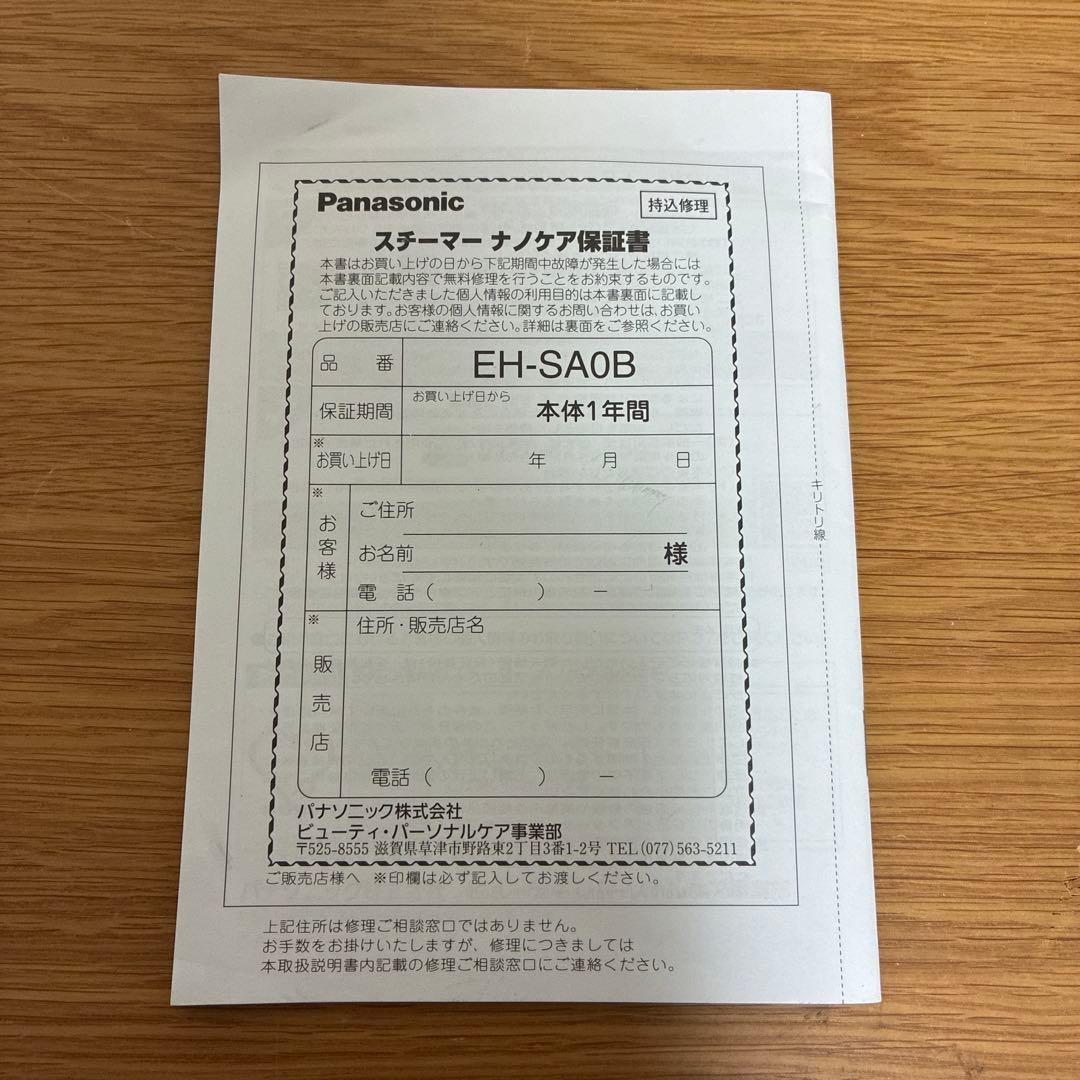 Panasonic
持込修理
スチーマー ナノケア保証書
本書はお買い上げの日から下記期間中故障が発生した場合には
本書裏面記載内容で無料修理を行うことをお約束するものです。
ご記入いただきました個人情報の利用目的は本書裏面に記載し
ております。お客様の個人情報に関するお問い合わせは、お買い
上げの販売店にご連絡ください。詳細は裏面をご参照ください。
品 番 EH-SA0B
保証期間 お買い上げ日から 本体1年間
※お買い上げ日 年 月 日
※お客様
ご住所
お名前 様
電 話 ( ) ー
※販売店
住所・販売店名
電話 ( ) ー
パナソニック株式会社
ビューティ・パーソナルケア事業部
〒525-8555 滋賀県草津市野路東2丁目3番1-2号 TEL (077) 563-5211
ご販売店様へ ※印欄は必ず記入してお渡しください。
上記住所は修理ご相談窓口ではありません。
お手数をお掛けいたしますが、修理につきましては
本取扱説明書内記載の修理ご相談窓口にご連絡ください。
キリトリ線